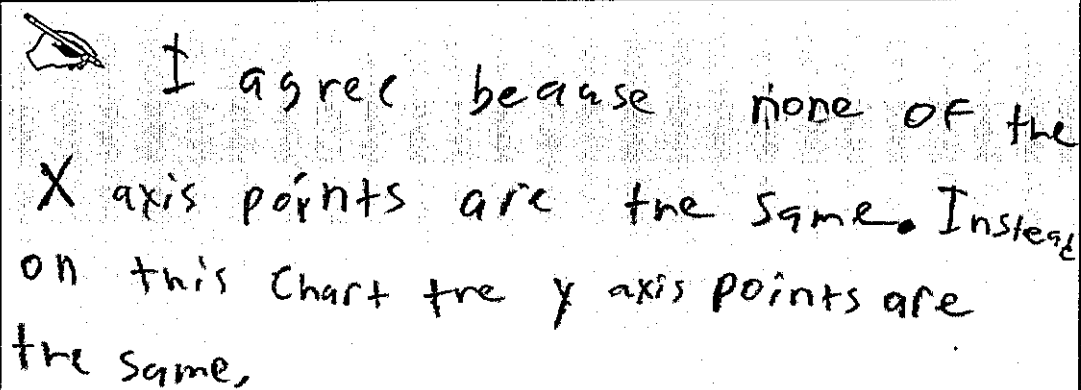 I agree beause none of the
X axis points are the same. Instead
on this Chart the y axis points are
the same,